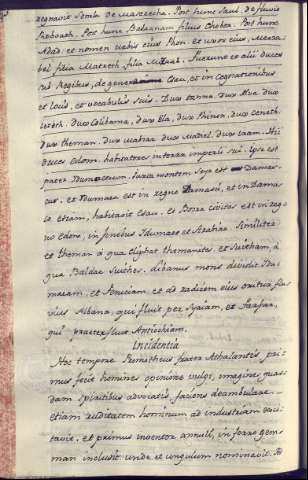 regnavit Semla de Masreccha. Post hunc Saul, de fluvio
Rohobath. Post hunc Balaanam filius Chobor. Post hunc
Adad, et nomen urbis eius Phou. et uxor eius, Meesa-
bel filia Matreth filia
sui Regibus, de Esau, et in cognationibus
et locis, et vocabulis suis. Dux tanna. dux Alva. dux
ieteth. dux Oolibama, dux Ela, dux Phinon, dux ceneth.
dux theman. dux mabsar dux Madiel. dux iram. Hii
duces edom. habitantes in terra imperii sui. ipse est
pater Idumeorum. Juxta montem Seyr est Damas-
cus. et Idumaea est in regno Damasci, et in Damas
co etiam, habitavit Esau. et Bosra civitas est in reg-
no edom, in finibus Idumaeae et Similiter
et theman à qua eliphat themanites. et Suitham, à
qua Baldac Suithes. Libanus mons dividit Idu
maeam, et Feniciam. et ad radicem eius oritur flu
vius Albana, qui fluit per Syriam, et Farfar,
qui praeterfluit Antiochiam.
Incidentia
Hoc tempore Prometheus frater Athalantis, pri-
mus fecit homines opinione vulgi, imagines quas-
dam spiritibus adversis faciens deambulare.
etiam ruditatem hominum ad industriam exci-
tavit. et primus inventor annuli, in ferro gem-
mam inclusit unde et ungulum nominavit.